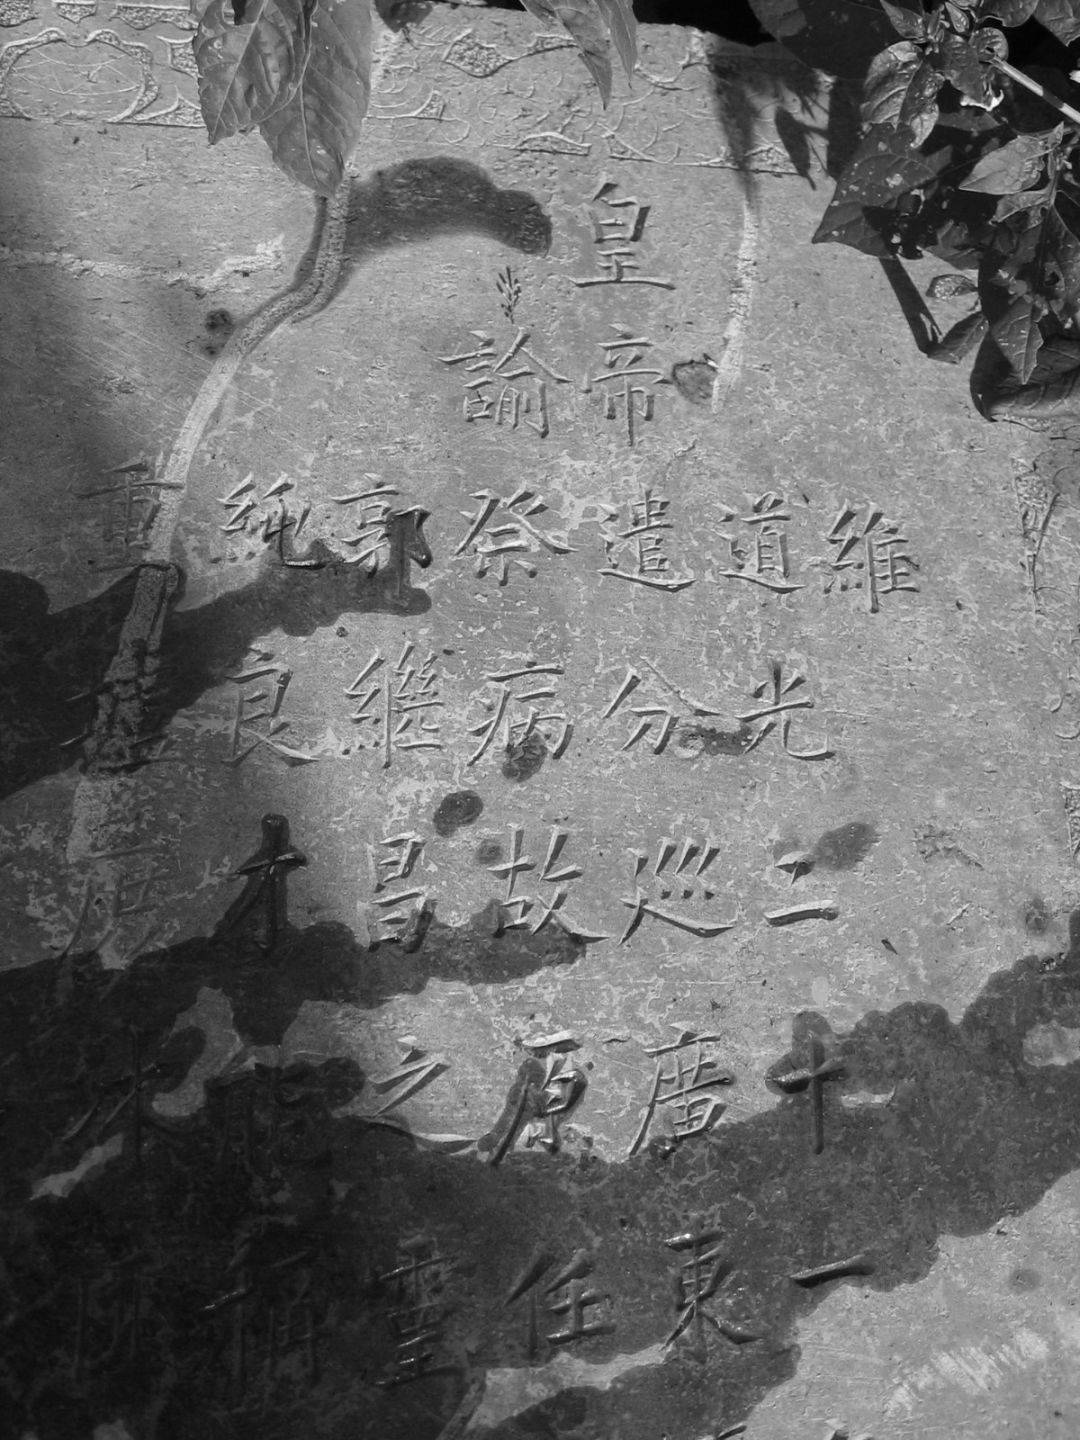 維
道光二十一
皇帝遣分巡廣東
諭祭病故原任
郭繼昌之靈
純良才能稱
重